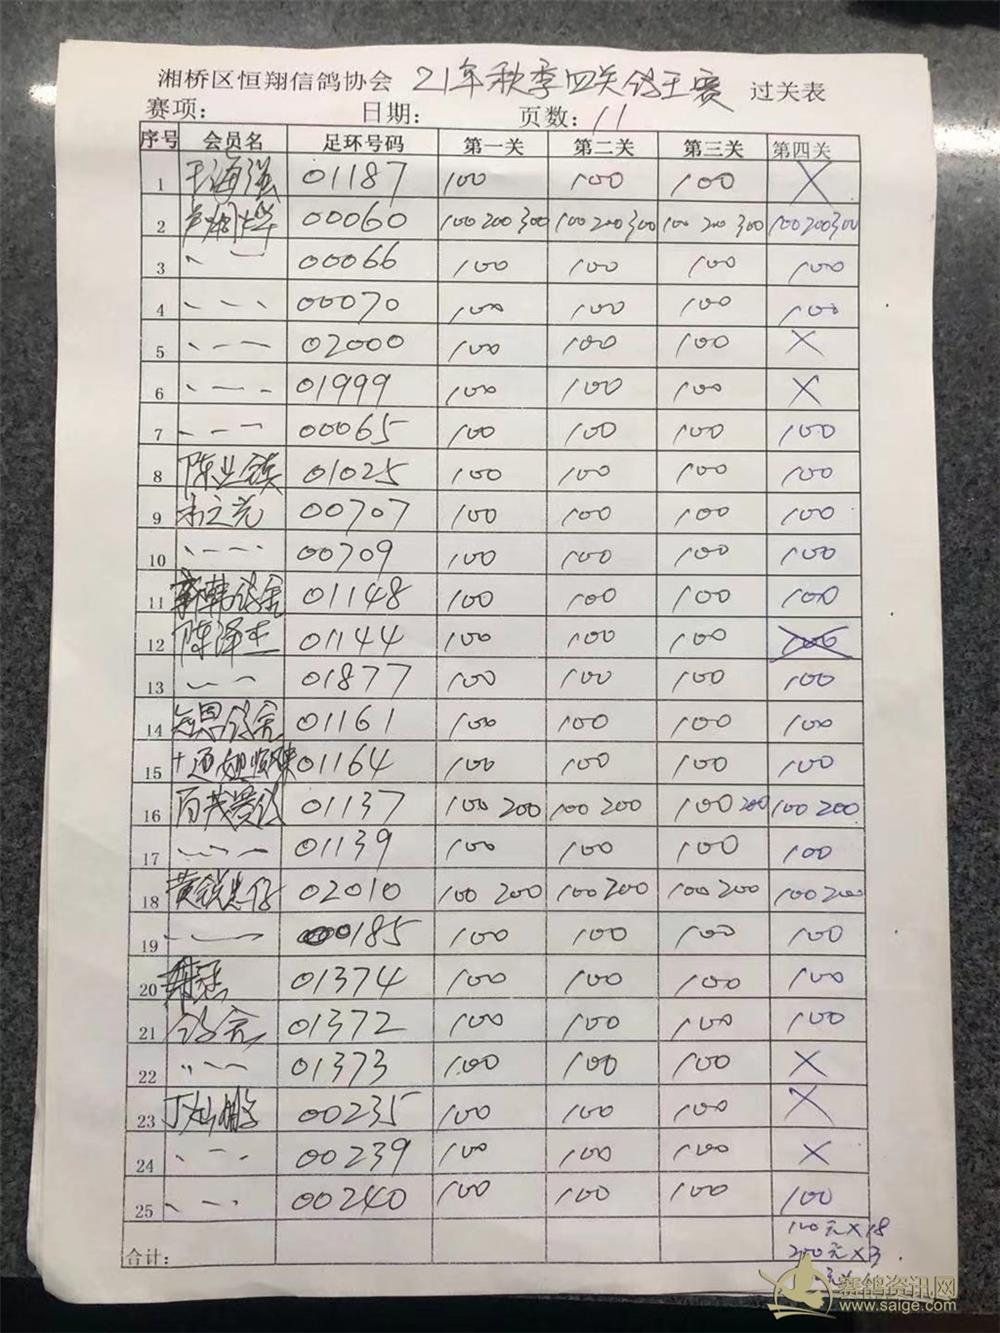 湘桥区恒翔信鸽协会 21年秋季四关鸽王赛 过关表
赛项: 日期: 页数: 11
序号 会员名 足环号码 第一关 第二关 第三关 第四关
1 王海强 01187 100 100 100 X
2 00060 100 200 300 100 200 300 100 200 300 100 200 300
3 〃 — 00066 100 100 100 100
4 、 — 、 00070 100 100 100 100
5 、 — — 02000 100 100 100 X
6 、 — — 01999 100 100 100 X
7 、 — — 00065 100 100 100 100
8 陈业镇 01025 100 100 100 100
9 00707 100 100 100 100
10 、 — — 00709 100 100 100 100
11 新韩鸽舍 01148 100 100 100 100
12 陈泽杰 01144 100 100 100 100
13 、 — 01877 100 100 100 100
14 鸽舍 01161 100 100 100 100
15 01164 100 100 100 100
16 百茂赛鸽 01137 100 200 100 200 100 200 100 200
17 、 — — 01139 100 100 100 100
18 黄锐 02010 100 200 100 200 100 200 100 200
19 — — 00185 100 100 100 100
20 01374 100 100 100 100
21 鸽舍 01372 100 100 100 100
22 〃 — 01373 100 100 100 X
23 丁灿鹏 00235 100 100 100 X
24 、 — 、 00239 100 100 100 X
25 、 — 、 00240 100 100 100 100
100元×18
200元×3
合计:
赛鸽资讯网
www.saige.com